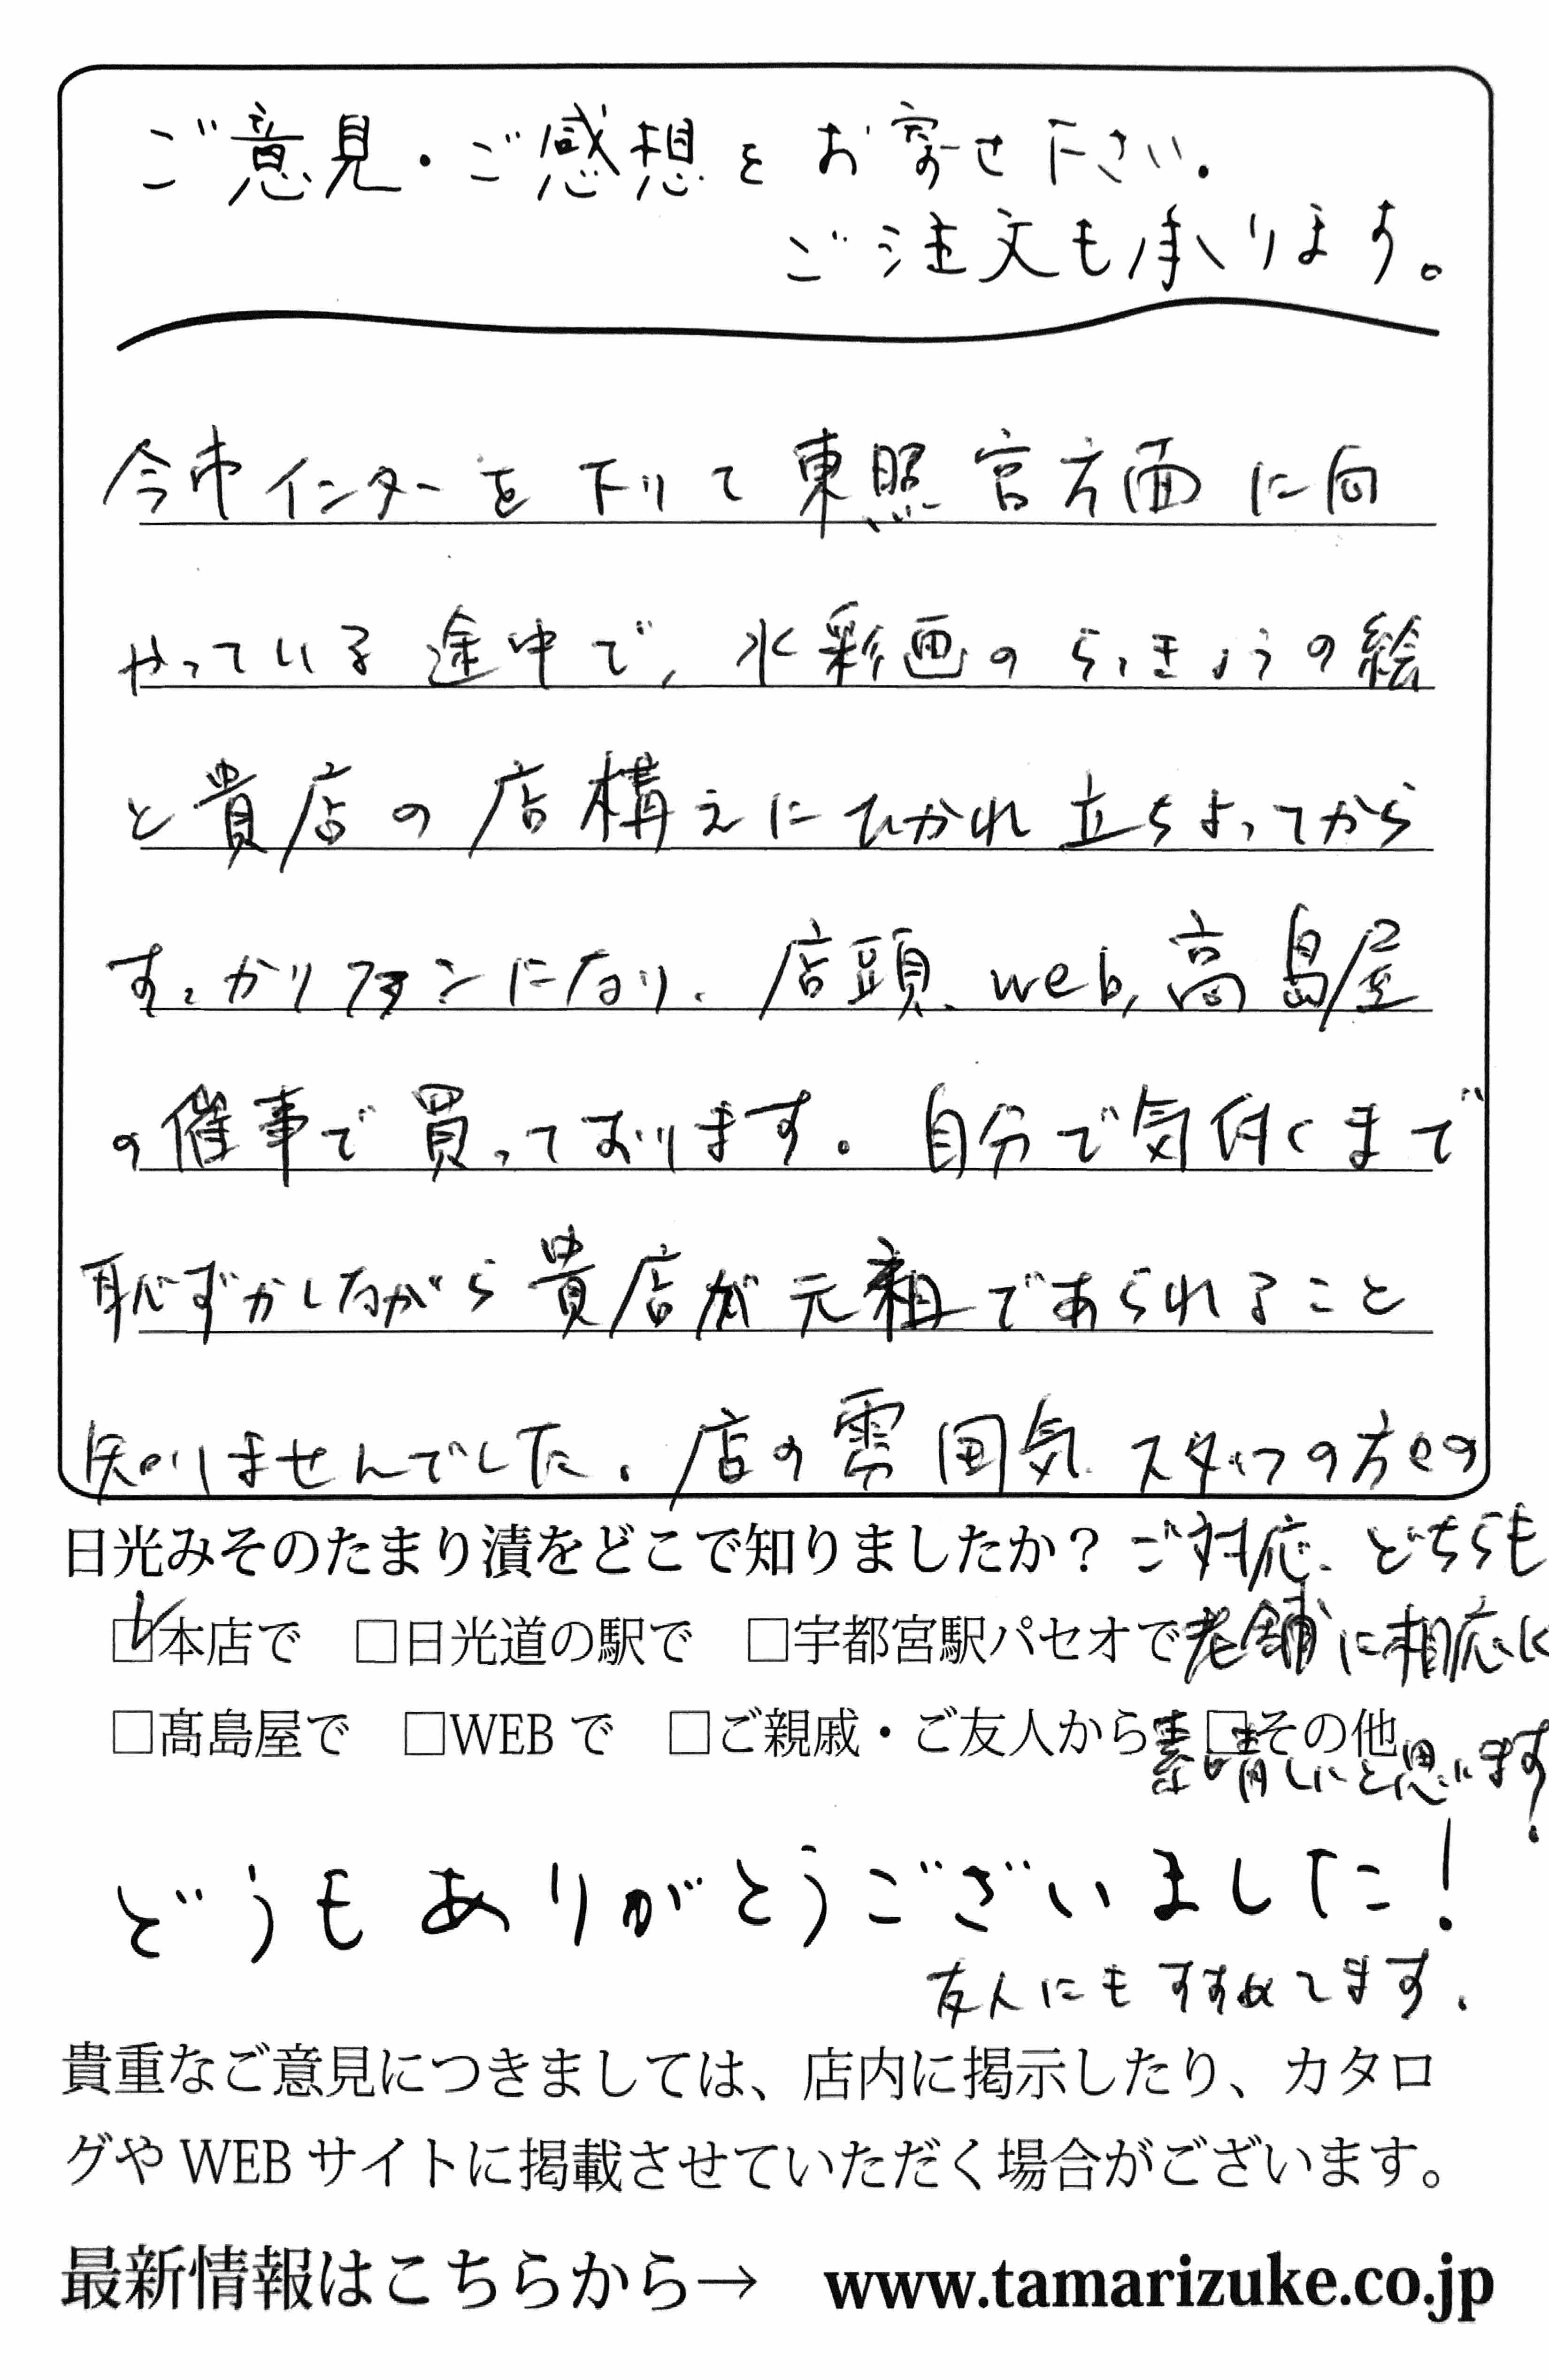 ご意見・ご感想をお寄せ下さい.
ご注文も承ります。
今市インターを下りて東照宮方面に向
やっている途中で、水彩画のらっきょうの絵
と貴店の店構えにひかれ立ちよってから
すっかりファンになり、店頭、web,高島屋
の催事で買っております。自分で気付くまで
恥ずかしながら貴店が元祖であられること
知りませんでした。店の雰囲気、スタッフの方々の
ご対応、どちらも
老舗に相応しく
素晴しいと思います。
日光みそのたまり漬をどこで知りましたか？
☑本店で □日光道の駅で □宇都宮駅パセオで
□髙島屋で □WEBで □ご親戚・ご友人から □その他
どうもありがとうございました！
友人にもすすめてます.
貴重なご意見につきましては、店内に掲示したり、カタロ
グやWEBサイトに掲載させていただく場合がございます。
最新情報はこちらから→ www.tamarizuke.co.jp